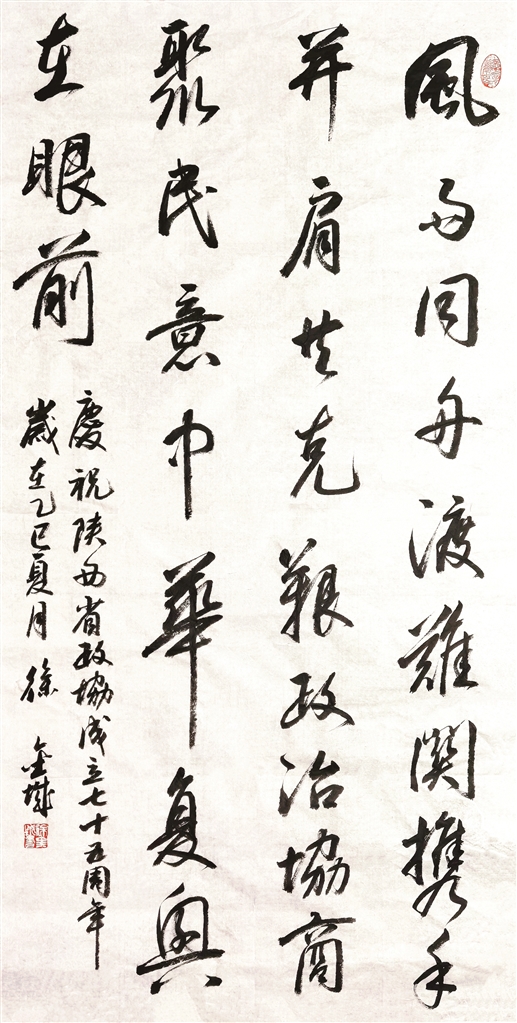 風雨同舟渡難関携手
并肩共克艱政治協商
聚民意中華复興
在眼前
慶祝陕西省政協成立七十五周年
歲在乙巳夏月 徐金城